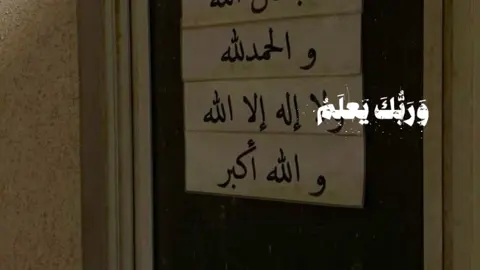 الله
و الحمدلله
ولا إله إلا الله
و الله أكبر
وَرَبُّكَ يَعلَمُ